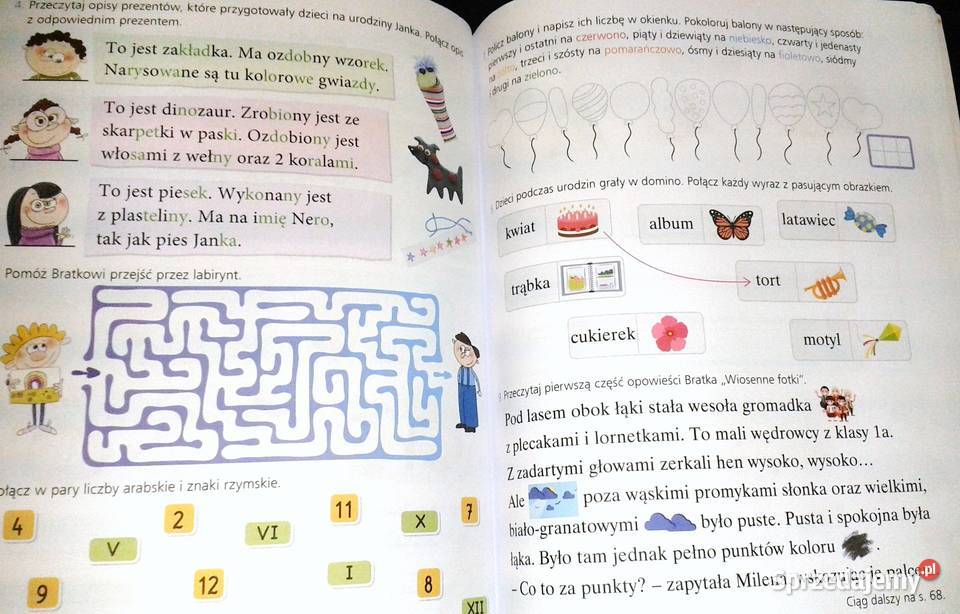 4. Przeczytaj opisy prezentów, które przygotowały dzieci na urodziny Janka. Połącz opis
z odpowiednim prezentem.
To jest zakładka. Ma ozdobny wzorek.
Narysowane są tu kolorowe gwiazdy.
To jest dinozaur. Zrobiony jest ze
skarpetki w paski. Ozdobiony jest
włosami z wełny oraz 2 koralami.
To jest piesek. Wykonany jest
z plasteliny. Ma na imię Nero,
tak jak pies Janka.
Pomóż Bratkowi przejść przez labirynt.
łącz w pary liczby arabskie i znaki rzymskie.
4
V
2
VI
11
X
7
9
12
I
8
XII
Policz balony i napisz ich liczbę w okienku. Pokoloruj balony w następujący sposób:
pierwszy i ostatni na czerwono, piąty i dziewiąty na niebiesko, czwarty i jedenasty
na żółto, trzeci i szósty na pomarańczowo, ósmy i dziesiąty na fioletowo, siódmy
i drugi na zielono.
Dzieci podczas urodzin grały w domino. Połącz każdy wyraz z pasującym obrazkiem.
kwiat
album
latawiec
trąbka
tort
cukierek
motyl
9. Przeczytaj pierwszą część opowieści Bratka „Wiosenne fotki”.
Pod lasem obok łąki stała wesoła gromadka
z plecakami i lornetkami. To mali wędrowcy z klasy 1a.
Z zadartymi głowami zerkali hen wysoko, wysoko...
Ale poza wąskimi promykami słonka oraz wielkimi,
biało-granatowymi było puste. Pusta i spokojna była
łąka. Było tam jednak pełno punktów koloru .
- Co to za punkty? – zapytała Milena, je palcem.
Ciąg dalszy na s. 68.
Sprzedajemy.pl